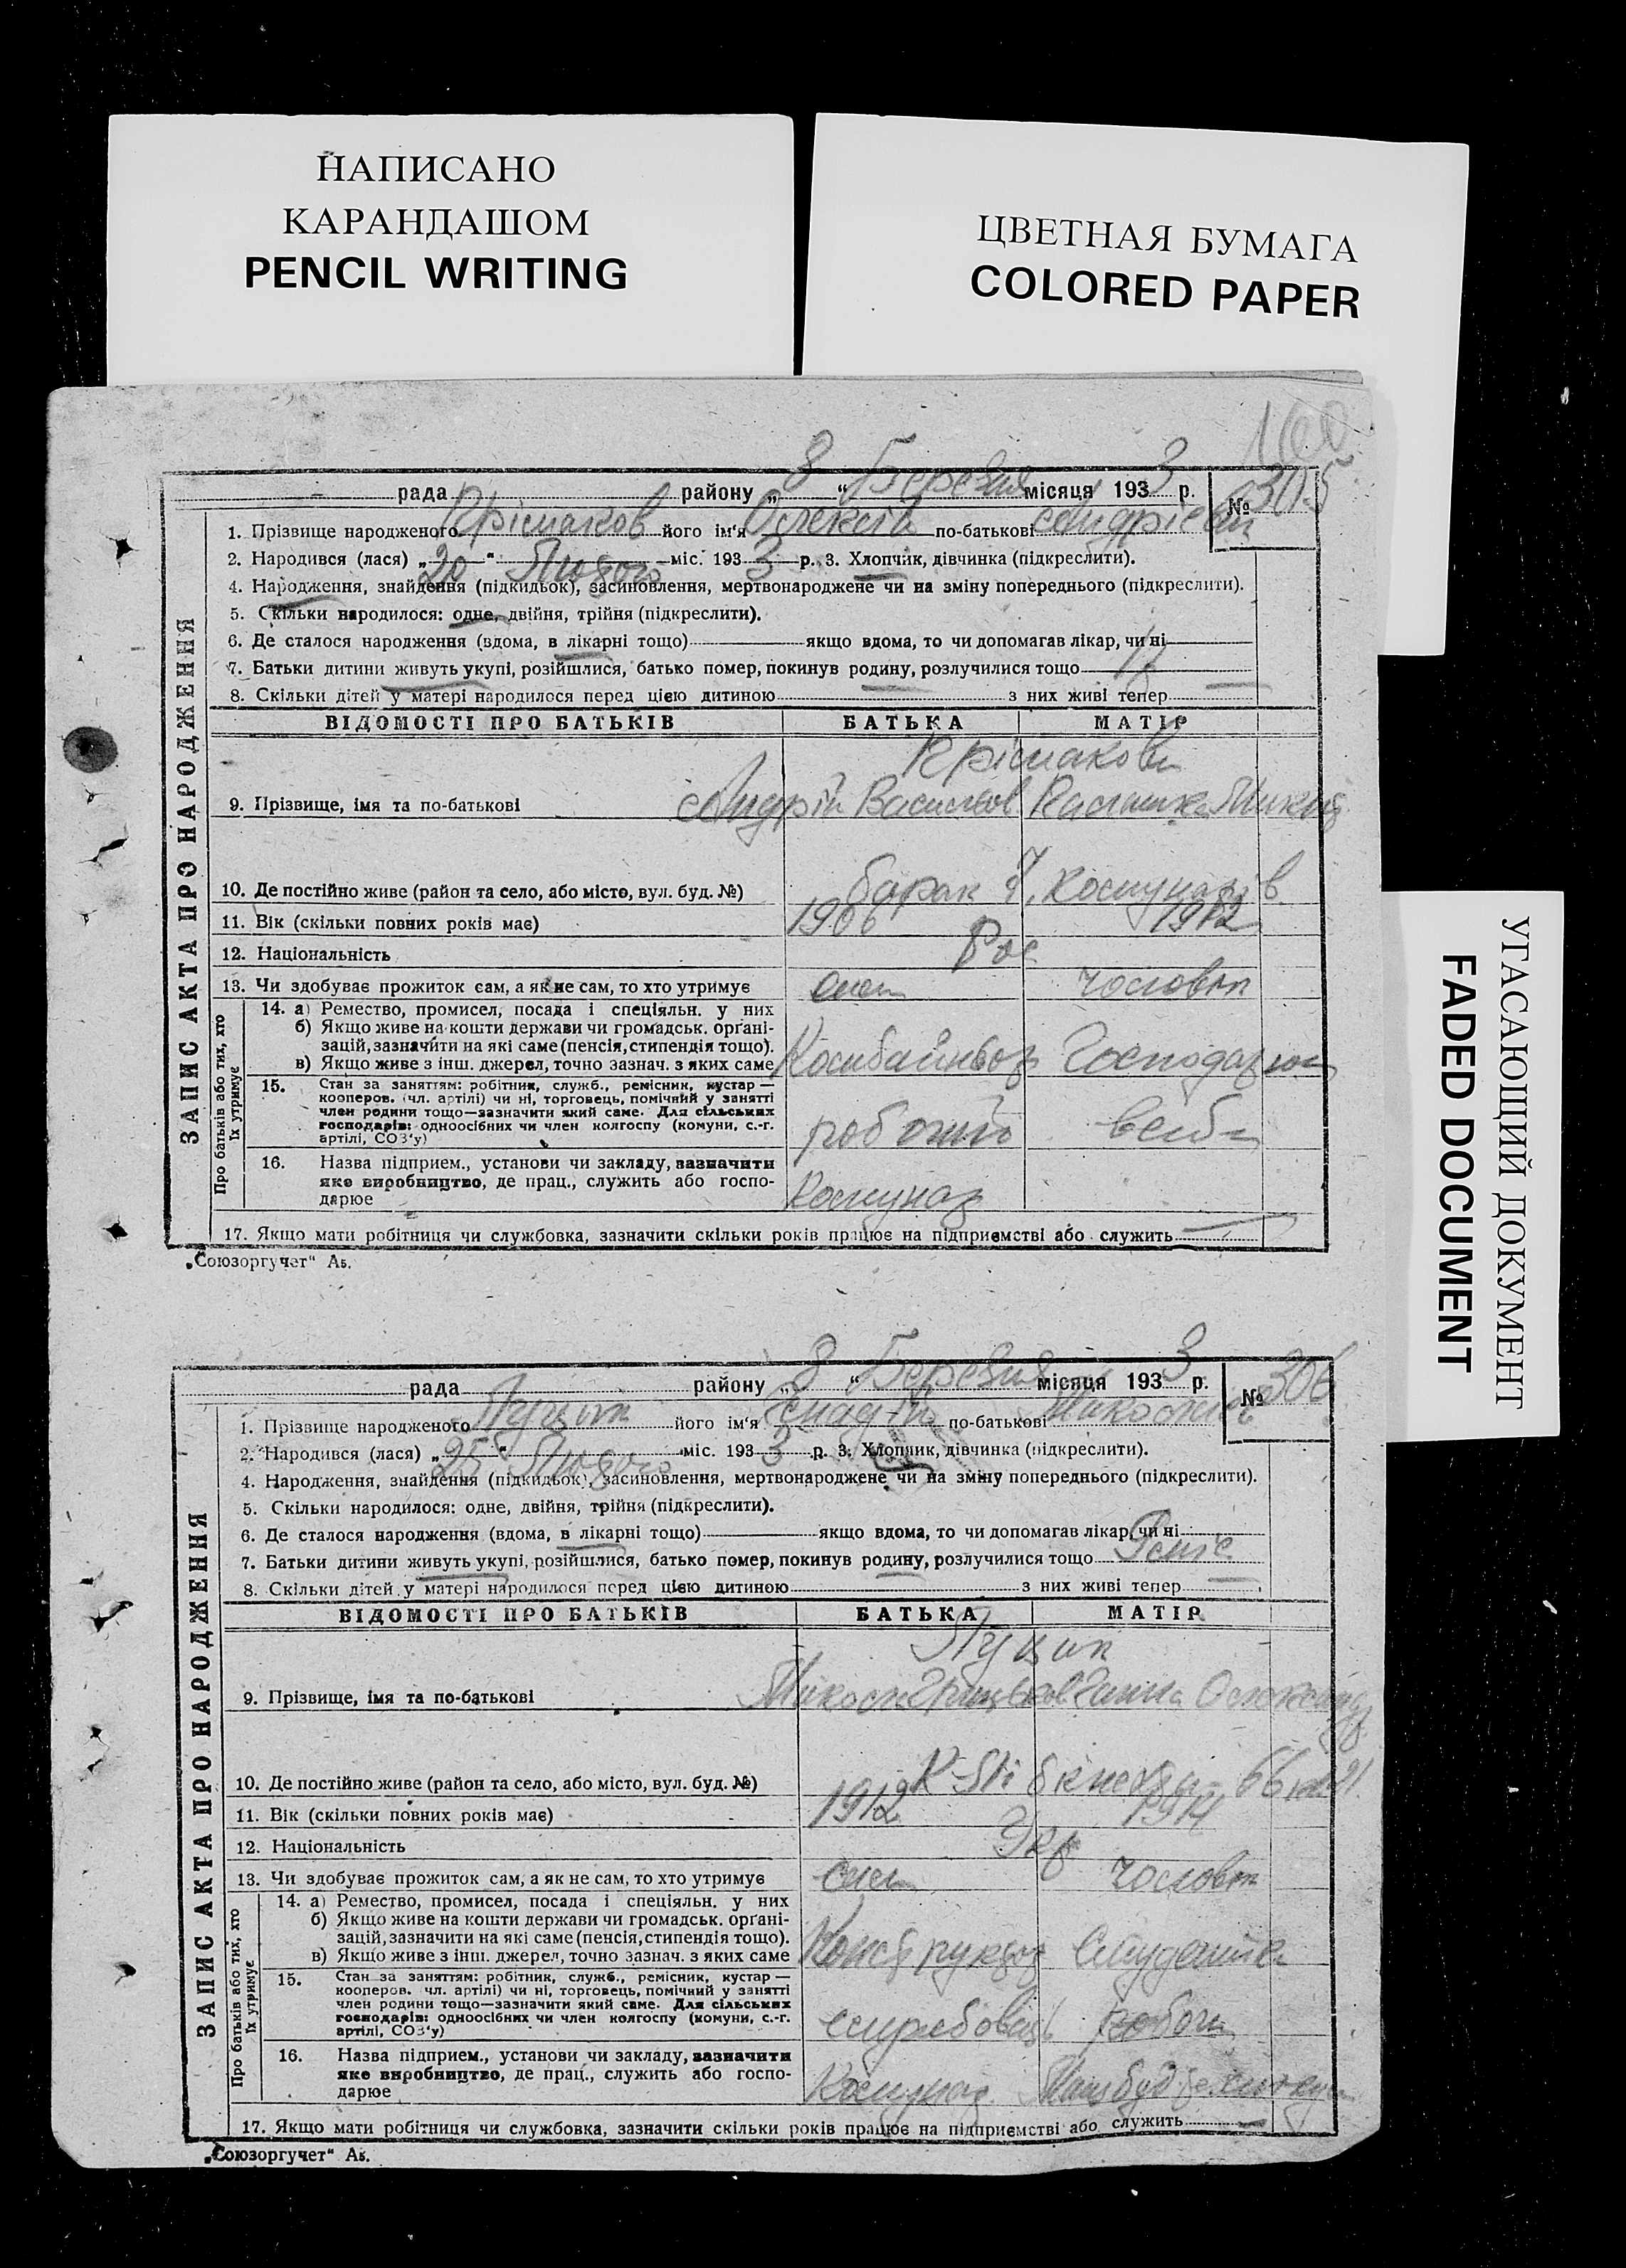 НАПИСАНО
КАРАНДАШОМ
PENCIL WRITING
ЦВЕТНАЯ БУМАГА
COLORED PAPER
УГАСАЮЩИЙ ДОКУМЕНТ
FADED DOCUMENT
160
ЗАПИС АКТА ПРО НАРОДЖЕННЯ
рада района району „ 8 “ Березня місяця 193 3 р. № 305
1. Прізвище народженого Крісмаков його ім'я Олексій по-батькові Андрієв
2. Народився (лася) „ 20 “ Лютого міс. 193 3 р. 3. Хлопчик, дівчинка (підкреслити).
4. Народження, знайдення (підкидьок), засиновлення, мертвонароджене чи на зміну попереднього (підкреслити).
5. Скільки народилося: одне, двійня, трійня (підкреслити).
6. Де сталося народження (вдома, в лікарні тощо) якщо вдома, то чи допомагав лікар, чи ні
7. Батьки дитини живуть укупі, розійшлися, батько помер, покинув родину, розлучилися тощо
8. Скільки дітей у матері народилося перед цією дитиною з них живі тепер
ВІДОМОСТІ ПРО БАТЬКІВ БАТЬКА МАТІР
9. Прізвище, імя та по-батькові Андрій Васильов
10. Де постійно живе (район та село, або місто, вул. буд. №) барак 7, Комунарів
11. Вік (скільки повних років має) 1906 1912
12. Національність Рос
13. Чи здобуває прожиток сам, а як не сам, то хто утримує сам чоловік
Про батьків або тих, хто їх утримує
14. а) Ремество, промисел, посада і спеціяльн. у них
б) Якщо живе на кошти держави чи громадськ. організацій, зазначити на які саме (пенсія, стипендія тощо).
в) Якщо живе з інш. джерел, точно зазнач. з яких саме
15. Стан за заняттям: робітник, служб., ремісник, кустар—
кооперов. (чл. артілі) чи ні, торговець, помічний у занятті
член родини тощо—зазначити який саме. Для сільських
господарів: одноосібних чи член колгоспу (комуни, с.-г.
артілі, СОЗ'у)
16. Назва підприєм., установи чи закладу, зазначити
яке виробництво, де прац., служить або госпо-
дарює Комунар
17. Якщо мати робітниця чи службовка, зазначити скільки років працює на підприємстві або служить
„Союзоргучет“ Аб.
ЗАПИС АКТА ПРО НАРОДЖЕННЯ
рада району „ 8 “ Березня місяця 193 3 р. № 306
1. Прізвище народженого Луцик його ім'я Генадій по-батькові Микол
2. Народився (лася) „ 25 “ Лютого міс. 193 3 р. 3. Хлопчик, дівчинка (підкреслити).
4. Народження, знайдення (підкидьок), засиновлення, мертвонароджене чи на зміну попереднього (підкреслити).
5. Скільки народилося: одне, двійня, трійня (підкреслити).
6. Де сталося народження (вдома, в лікарні тощо) якщо вдома, то чи допомагав лікар, чи ні
7. Батьки дитини живуть укупі, розійшлися, батько помер, покинув родину, розлучилися тощо
8. Скільки дітей у матері народилося перед цією дитиною з них живі тепер
ВІДОМОСТІ ПРО БАТЬКІВ БАТЬКА МАТІР
Луцик
9. Прізвище, імя та по-батькові Ганна Олександр
10. Де постійно живе (район та село, або місто, вул. буд. №)
11. Вік (скільки повних років має) 1912 1914
12. Національність Укр
13. Чи здобуває прожиток сам, а як не сам, то хто утримує сам чоловік
Про батьків або тих, хто їх утримує
14. а) Ремество, промисел, посада і спеціяльн. у них
б) Якщо живе на кошти держави чи громадськ. організацій, зазначити на які саме (пенсія, стипендія тощо).
в) Якщо живе з інш. джерел, точно зазнач. з яких саме Конструктор Студентка
15. Стан за заняттям: робітник, служб., ремісник, кустар—
кооперов. чл. артілі) чи ні, торговець, помічний у занятті
член родини тощо—зазначити який саме. Для сільських
господарів: одноосібних чи член колгоспу (комуни, с.-г.
артілі, СОЗ'у) службовець
16. Назва підприєм., установи чи закладу, зазначити
яке виробництво, де прац., служить або госпо-
дарює Комунар
17. Якщо мати робітниця чи службовка, зазначити скільки років працює на підприємстві або служить
„Союзоргучет“ Аб.